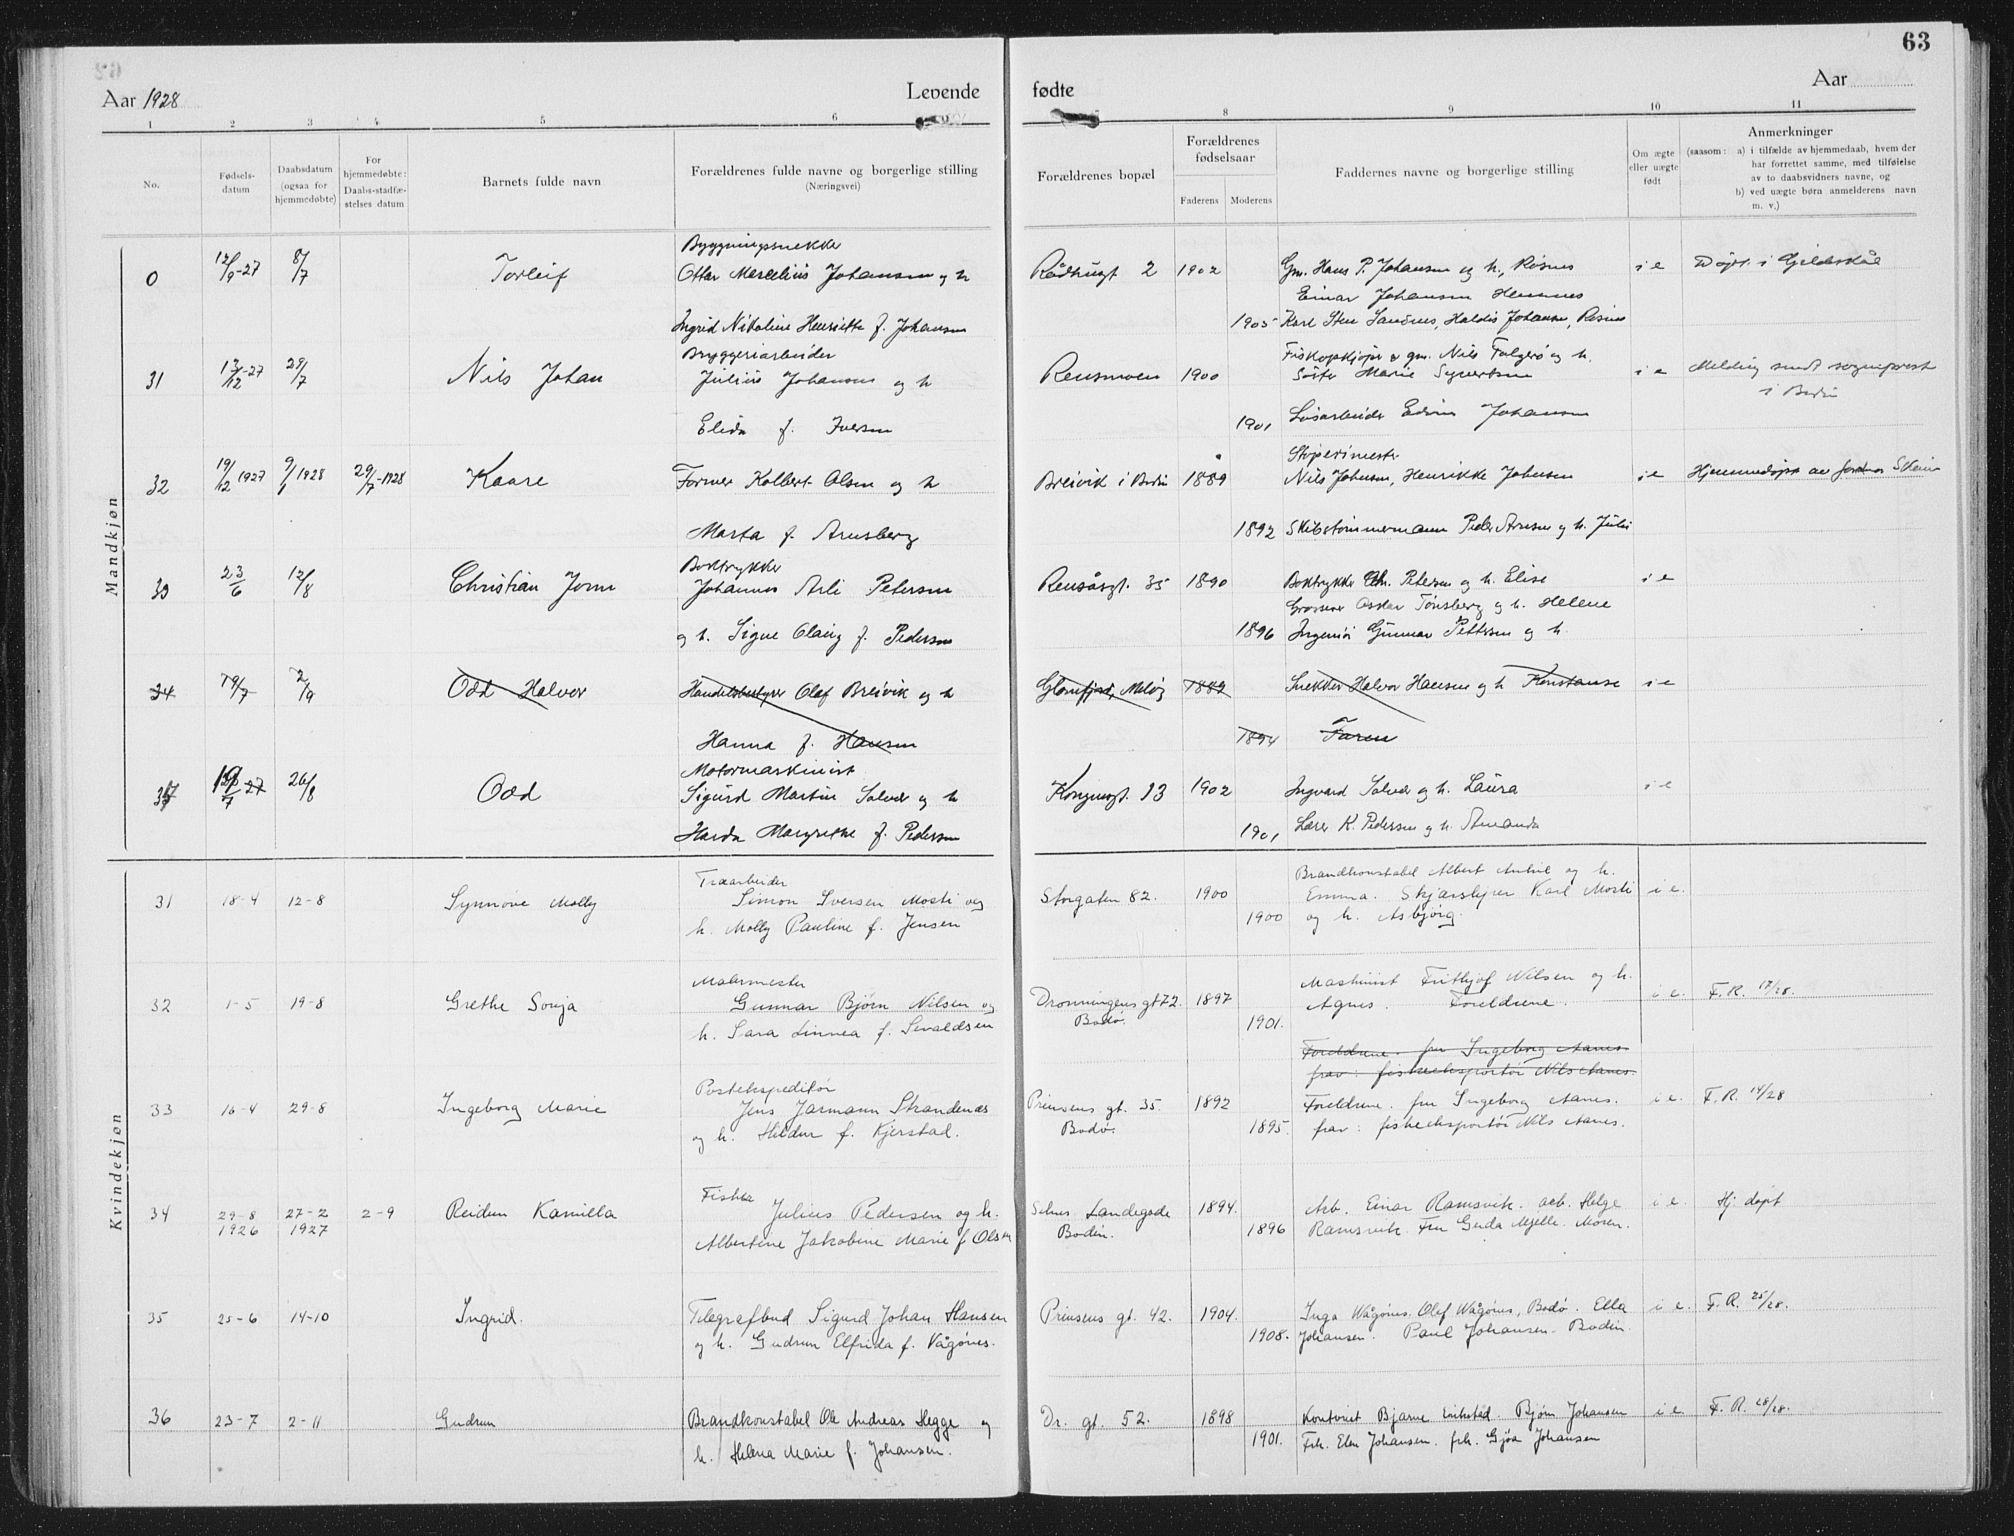 63
Aar 1928 Levende
fødte Aar
1 2 3 4 5 6
8 9 10 11
No.
Fødsels-
datum
Daabsdatum
(ogsaa for
hjemmedøbte)
For
hjemmedøbte:
Daabs-stadfæ-
stelses datum
Barnets fulde navn
Forældrenes fulde navne og borgerlige stilling
(Næringsvei)
Forældrenes bopæl
Forældrenes
fødselsaar
Faderens Moderens
Faddernes navne og borgerlige stilling
Om ægte
eller uægte
født
Anmerkninger
(saasom: a) i tilfælde av hjemmedaab, hvem der
har forrettet samme, med tilføielse
av to daabsvidners navne, og
b) ved uægte børn anmelderens navn
m. v.)
Mandkjøn
Byggningssnekker
0 12/9-27 8/7 Torleif Ottar Marcelius Johansen og h
Ingrid Nikoline Henriette f. Johansen
Rådhusgt 2 1902 Gm. Hans P. Johansen og h., Røsnes i e Døpt i Gildeskål
Einar Johansen Hemnes
1905 Karl Sten Sandnes, Haldis Johansen, Røsnes
Bryggeriarbeider
31 13/12-27 29/7 Nils Johan Julius Johansen og h
Elida f. Iversen
Fiskeopkjøper & gm. Nils Falgerø og h.
Rensmoen 1900 Søster Marie Syvertsen i e Melding sendt sogneprest
i Bodin
1901 Løsarbeider Edvin Johansen
32 19/12 1927 9/1 1928 29/7-1928 Kaare Former Kolbert Olsen og h
Marta f. Arnsberg
Støperimester
Breivik i Bodin 1889 Nils Johansen, Henrikke Johansen i e Hjemmedøpt av
1892 Skibstømmermann Peder Arnesen og h. Julie
Boktrykker
33 23/6 12/8 Christian Jonn Johannes Arli Petersen
og h. Signe Olaug f. Pedersen
Rensåsgt. 35 1890 Boktrykker Chr. Petersen og h. Elise i e
Grosserer Oskar Tønsberg og h. Helene
1896 Ingeniør Gunnar Pettersen og h.
34 19/7 2/9 Odd Halvor Handelsbestyrer Olaf Breivik og h
Hanna f. Hansen
Glomfjord, Meløy 1889 Snekker Halvor Hansen og h Konstanse i e
1894 Faren
Motormaskinist
37 19/7 27 26/8 Odd Sigurd Martin Solver og h
Harda Margrethe f. Pedersen
Kongensgt. 13 1902 Ingvard Solver og h. Laura i e
1901 Lærer K. Pedersen og h. Amanda
Kvindekjøn
Træarbeider
31 18-4 12-8 Synnøve Molly Simon Iversen Mosti og
h. Molly Pauline f. Jensen
Brandkonstabel Albert Antil og h.
Storgaten 82. 1900 Emma. Skjærsliper Karl Mosti i e.
1900 og h. Asbjørg.
Malermester
32 1-5 19-8 Grethe Sonja Gunnar Bjørn Nilsen og
h. Sara Linnea f. Sivaldsen
Maskinist Frithjof Nilsen og h.
Dronningens gt 72. 1897 Agnes. Foreldrene. i e. F.R. 17/28.
Bodø. 1901.
Foreldrene. fru Ingeborg Aanes.
frav: fiskeeksportør Nils Aanes.
Postekspeditør
33 16-4 29-8 Ingeborg Marie Jens Jarmann Strandenæs
og h. Hildur f. Kjerstad.
Prinsens gt. 35. 1892 Foreldrene. fru Ingeborg Aanes. i e. F.R. 14/28
Bodø. 1895. frav: fiskeeksportør Nils Aanes.
Fisker
34 29-8 27-2 2-9 Reidun Kamilla Julius Pedersen og h.
1926 1927 Albertine Jakobine Marie f Olsen
Selnes Landegode 1894. Arb. Einar Ramsvik. arb. Helge i e. Hj. døpt
Bodin. 1896 Ramsvik. Fru Gerda Mjelle. Moren.
35 25-6 14-10 Ingrid. Telegrafbud Sigurd Johan Hansen
og h. Gudrun Elfrida f. Vågønes.
Prinsens gt. 42. 1904. Inga Vågønes. Olef Vågønes, Bodø. Ella i e. F.R. 25/28.
1908. Johansen. Paul Johansen. Bodin.
36 23-7 2-11 Gudrun Brandkonstabel Ole Andreas Hegge og
h. Helena Marie f. Johansen.
Dr. gt. 52. 1898 Kontorist Bjarne Enkstad. Bjørn Johansen i e. F.R. 28/28.
1901. Frk. Elen Johansen. frk. Gjøa Johansen